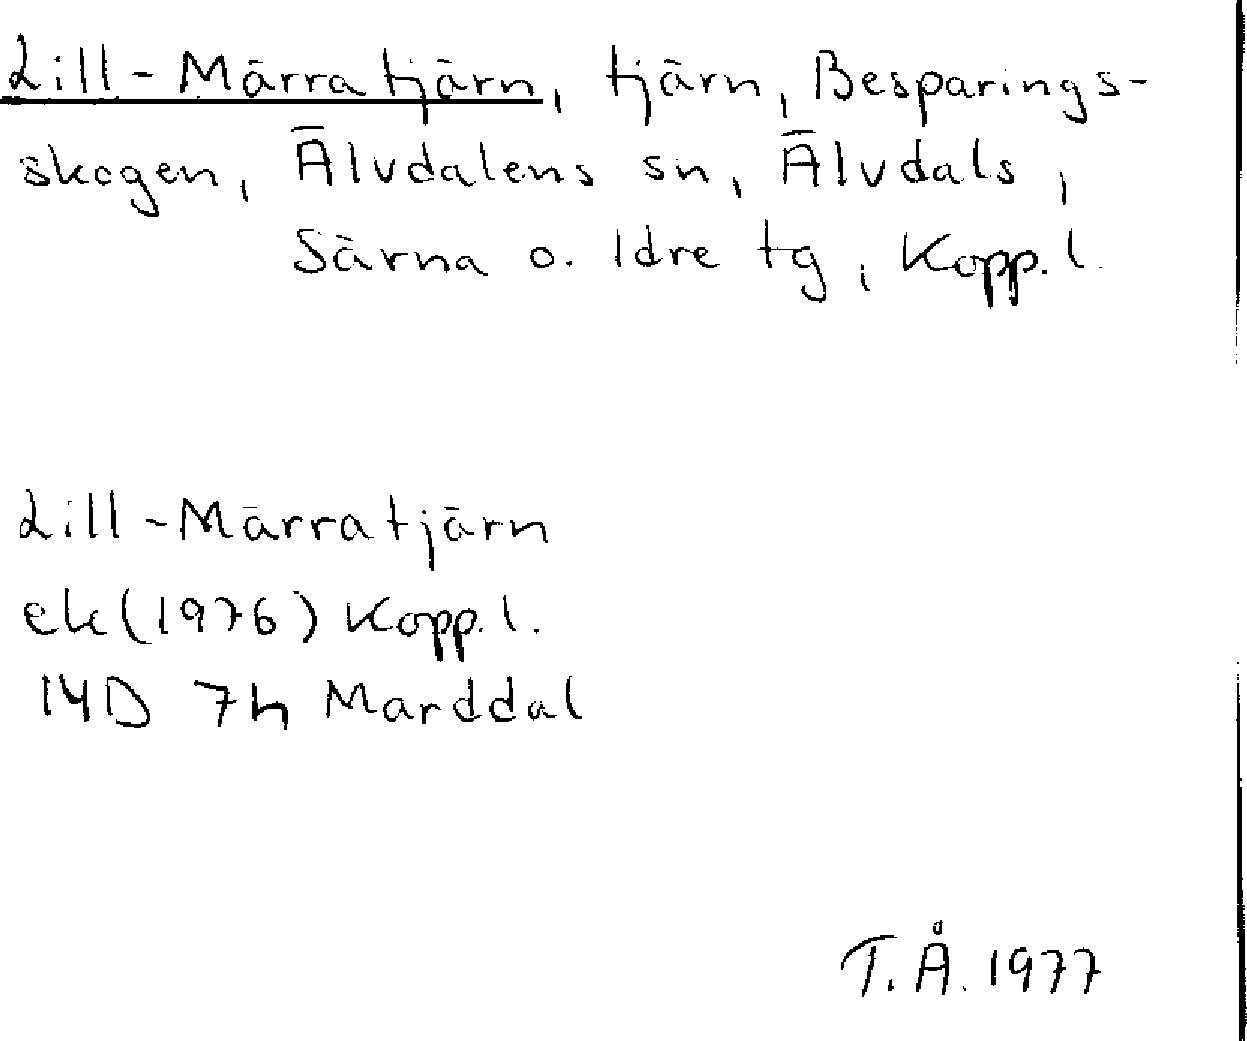 Lill-Märratjärn, tjärn, Besparings-
skogen, Älvdalens sn, Älvdals,
Särna o. Idre tg, Kopp. l.
Lill-Märratjärn
ek (1976) Kopp. l.
14D 7h Marddal
T.Å. 1977